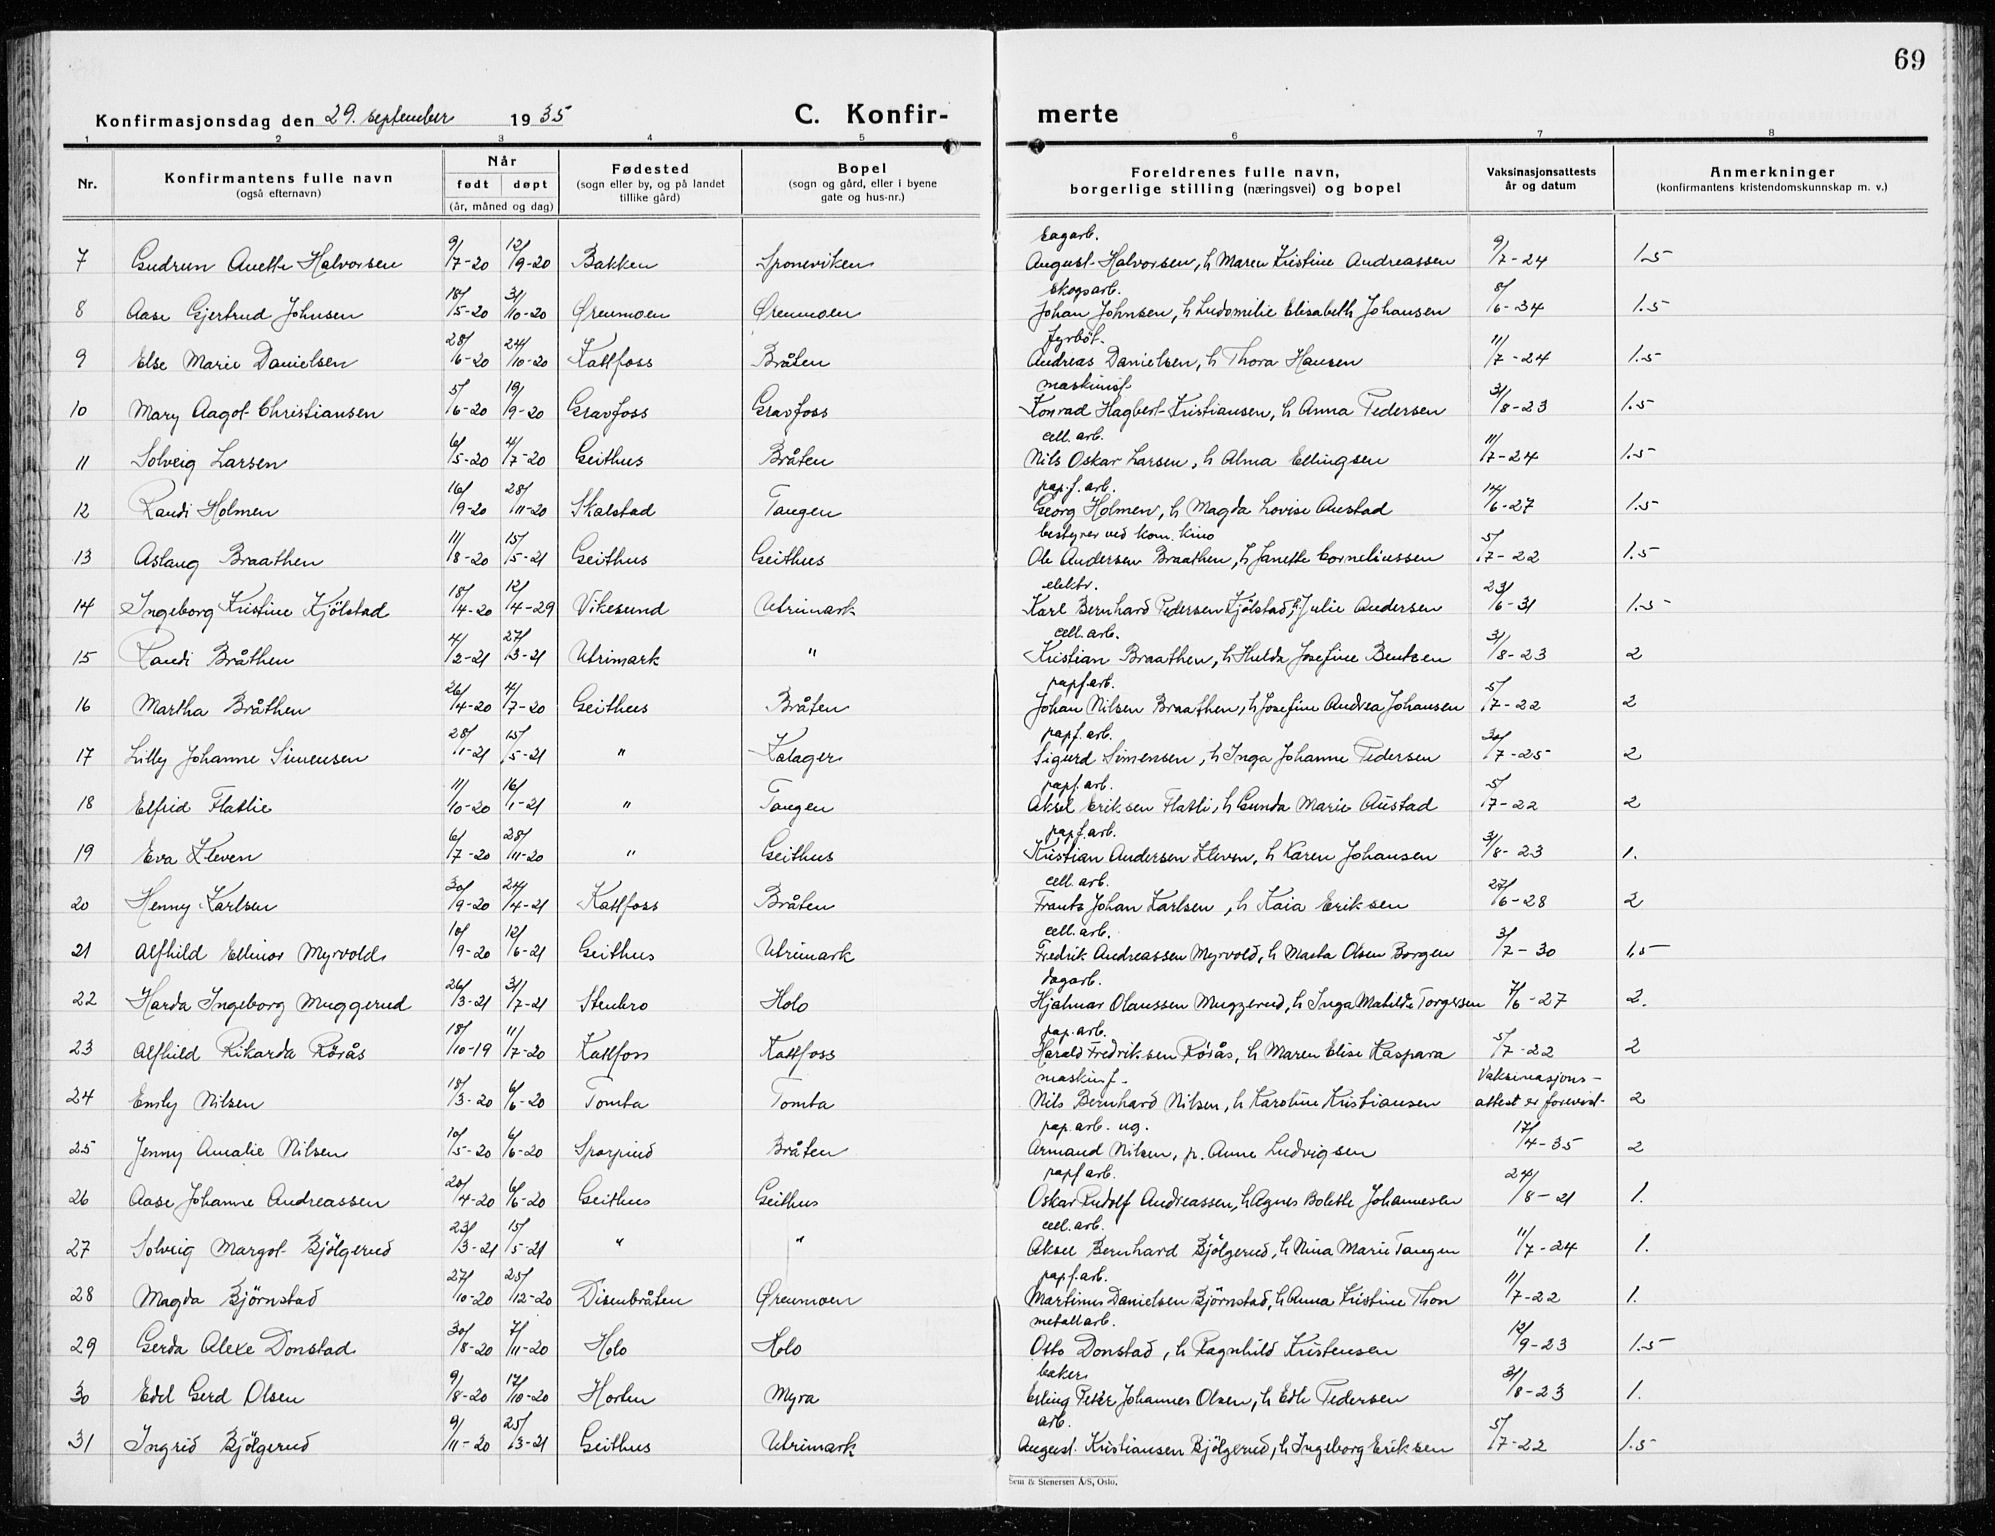 69
Konfirmasjonsdag den 29. september 1935 C. Konfir- merte
1 2 3 4 5 6 7 8
Nr. Konfirmantens fulle navn (også efternavn) Når født døpt (år, måned og dag) Fødested (sogn eller by, og på landet tillike gård) Bopel (sogn og gård, eller i byene gate og hus-nr.) Foreldrenes fulle navn, borgerlige stilling (næringsvei) og bopel Vaksinasjonsattests år og datum Anmerkninger (konfirmantens kristendomskunnskap m. v.)
sagarb.
7 Gudrun Anette Halvorsen 9/7-20 12/9-20 Bakken Sponeviken August Halvorsen, h Maren Kristine Andreassen 9/7-24 1.5
skogsarb.
8 Aase Gjertrud Johnsen 18/5-20 31/10-20 Ørenmoen Ørenmoen Johan Johnsen, h Ludomilie Elisabeth Johansen 8/6-34 1.5
fyrbøt.
9 Else Marie Danielsen 28/6-20 24/10-20 Kattfoss Bråten Andreas Danielsen, h Thora Hansen 11/7-24 1.5
maskinf.
10 Mary Aagot Christiansen 5/6-20 19/9-20 Gravfoss Gravfoss Konrad Hagbert Kristiansen, h Anna Pedersen 31/8-23 1.5
cell. arb.
11 Solveig Larsen 6/5-20 4/7-20 Geithus Bråten Nils Oskar Larsen, h Alma Ellingsen 11/7-24 1.5
pap.f. arb.
12 Randi Holmen 16/9-20 28/11-20 Skalstad Tangen Georg Holmen, h Magda Lovise Austad 14/6-27 1.5
bestyrer ved kom. kino
13 Aslaug Braathen 11/8-20 15/5-21 Geithus Geithus Ole Andersen Braathen, h Janette Corneliussen 5/7-22 1.5
elektr.
14 Ingeborg Kristine Kjölstad 18/4-20 12/4-29 Vikesund Utrimark Karl Bernhard Pedersen Kjölstad, h Julie Andersen 23/6-31 1.5
cell. arb.
15 Randi Bråthen 4/2-21 27/3-21 Utrimark " Kristian Braathen, h Hulda Josefine Bentsen 31/8-23 2
papf. arb.
16 Martha Bråthen 26/4-20 4/7-20 Geithus Bråten Johan Nilsen Braathen, h Josefine Andrea Johansen 5/7-22 2
papf. arb.
17 Lilly Johanne Simensen 28/1-21 15/5-21 " Kalager Sigurd Simensen, h Inga Johanne Pedersen 30/7-25 2
papf. arb.
18 Elfrid Flatlie 11/10-20 16/1-21 " Tangen Aksel Eriksen Flatli, h Gunda Marie Austad 5/7-22 2
papf. arb.
19 Eva Kleven 6/7-20 28/11-20 " Geithus Kristian Andersen Kleven, h Karen Johansen 31/8-23 1.
cell. arb.
20 Henny Karlsen 30/9-20 24/4-21 Kattfoss Bråten Frantz Johan Karlsen, h Kaia Eriksen 27/6-28 2
cell. arb.
21 Alfhild Ellinor Myrvold 10/9-20 12/6-21 Geithus Utrimark Fredrik Andreassen Myrvold, h Marta Olsen Borgen 3/7-30 1,5
dagarb.
22 Harda Ingeborg Muggerud 26/3-21 31/7-21 Stenbro Holo Hjalmar Olaussen Muggerud, h Inga Matilde Torgersen 7/6-27 2.
pap. arb.
23 Alfhild Rikarda Rörås 18/10-19 11/7-20 Kattfoss Kattfoss Harald Fredriksen Rörås, h Maren Elise Kaspara 5/7-22 2
maskinf. Vaksinasjons-
24 Emly Nilsen 18/3-20 6/6-20 Tomta Tomta Nils Bernhard Nilsen, h Karoline Kristiansen attest er forevist 2
pap. arb. ug.
25 Jenny Amalie Nilsen 10/5-20 6/6-20 Bråten Armand Nilsen, p. Anne Ludvigsen 17/4-35 2
papf arb.
26 Aase Johanne Andreassen 20/4-20 6/6-20 Geithus Geithus Oskar Rudolf Andreassen, h Agnes Bolette Johannesen 24/8-21 1.
cell. arb.
27 Solveig Margot Bjölgerud 23/3-21 15/5-21 " " Aksel Bernhard Bjölgerud, h Nina Marie Tangen 11/7-24 1.
papf. arb.
28 Magda Björnstad 27/10-20 25/12-20 Disenbråten Ørenmoen Martinus Danielsen Björnstad, h Anna Kristine Thon 11/7-22 1.
metallarb.
29 Gerda Alexe Donstad 30/8-20 7/11-20 Holo Holo Otto Donstad, h Ragnhild Kristensen 12/9-23 1.5
baker
30 Edel Gerd Olsen 9/8-20 17/10-20 Horten Myra Erling Peter Johannes Olsen, h Edle Pedersen 31/8-23 1.
arb.
31 Ingrid Bjölgerud 9/11-20 25/3-21 Geithus Utrimark August Kristiansen Bjölgerud, h Ingeborg Eriksen 5/7-22 1.5
Sem & Stenersen A/S, Oslo.